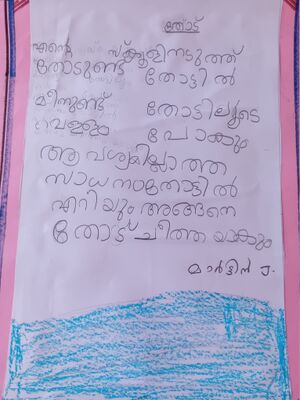 തോട്
എന്റെ സ്കൂളിനടുത്ത്
തോടുണ്ട് തോട്ടിൽ
മീനുണ്ട് തോട്ടിലൂടെ
വെള്ളം പോകും
ആവശ്യമില്ലാത്ത
സാധനംതോട്ടിൽ
എറിയും അങ്ങനെ
തോട് ചീത്തയാകും
മാർട്ടിൻ J.